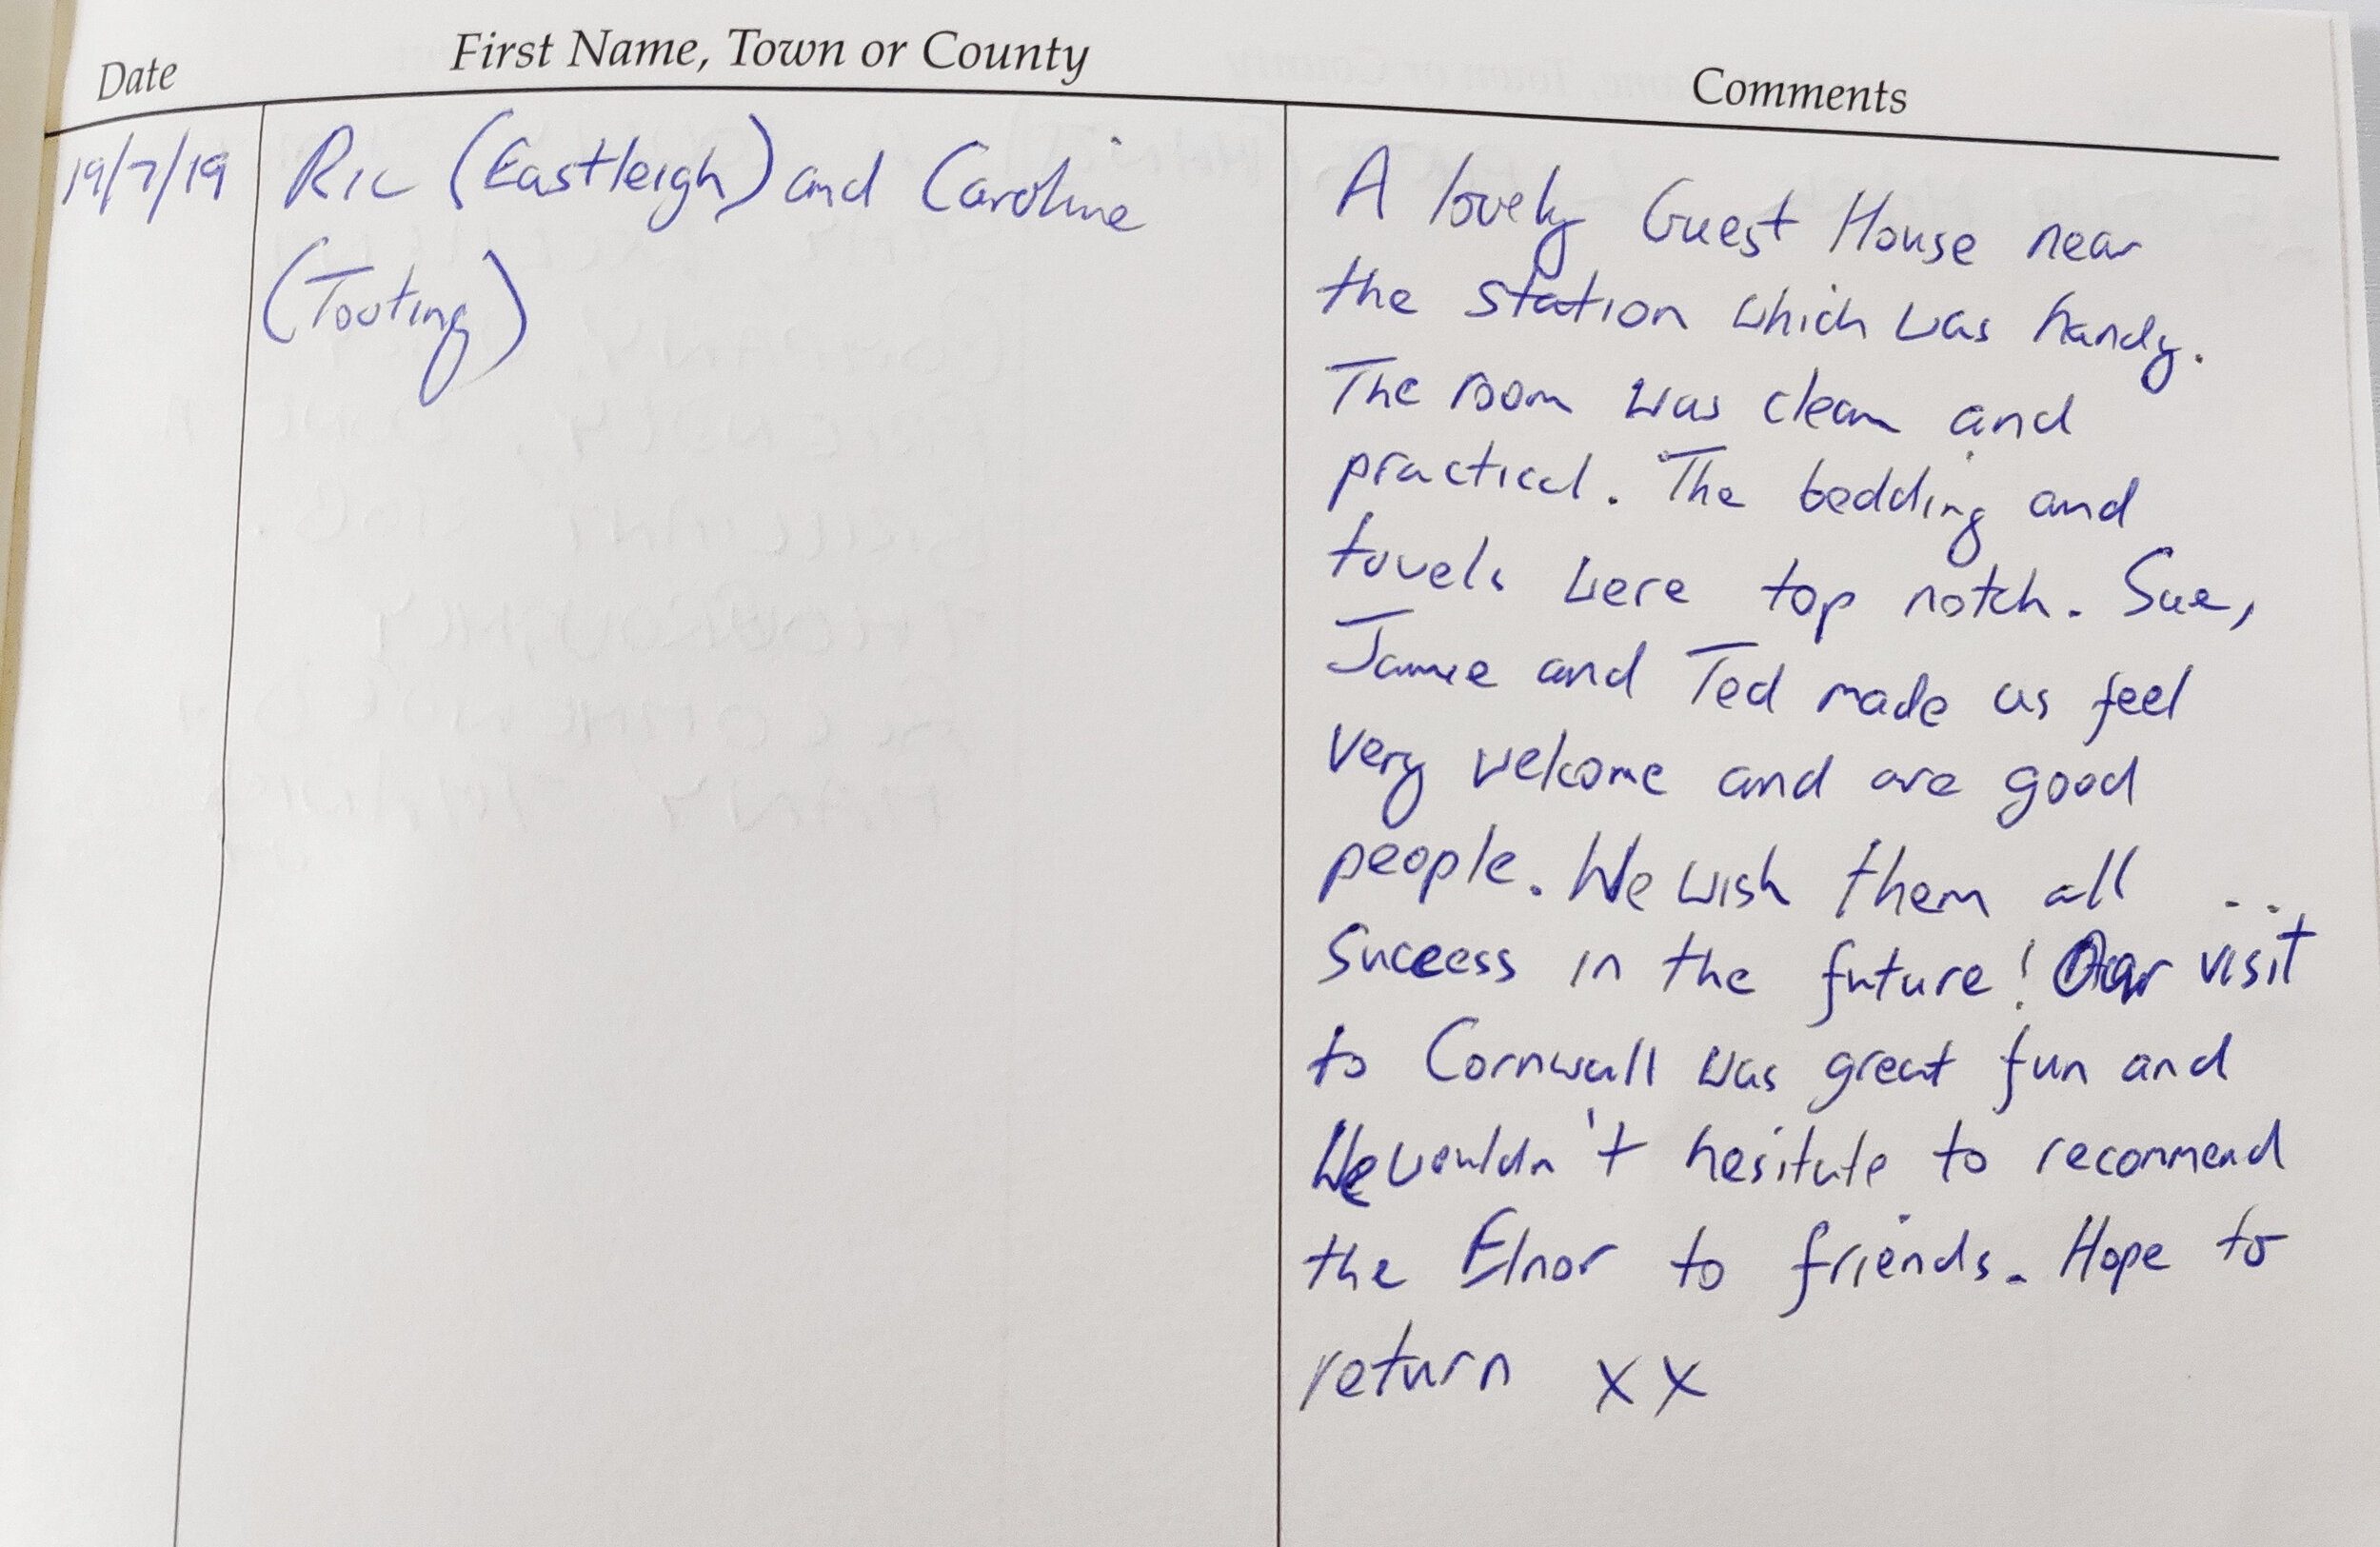 Date First Name, Town or County Comments
19/7/19 Ric (Eastleigh) and Caroline
(Tooting)
A lovely Guest House near
the station which was handy.
The room was clean and
practical. The bedding and
towels were top notch. Sue,
Jamie and Ted made us feel
very welcome and are good
people. We wish them all
success in the future! Our visit
to Cornwall was great fun and
We wouldn't hesitate to recommend
the Elnor to friends. Hope to
return xx